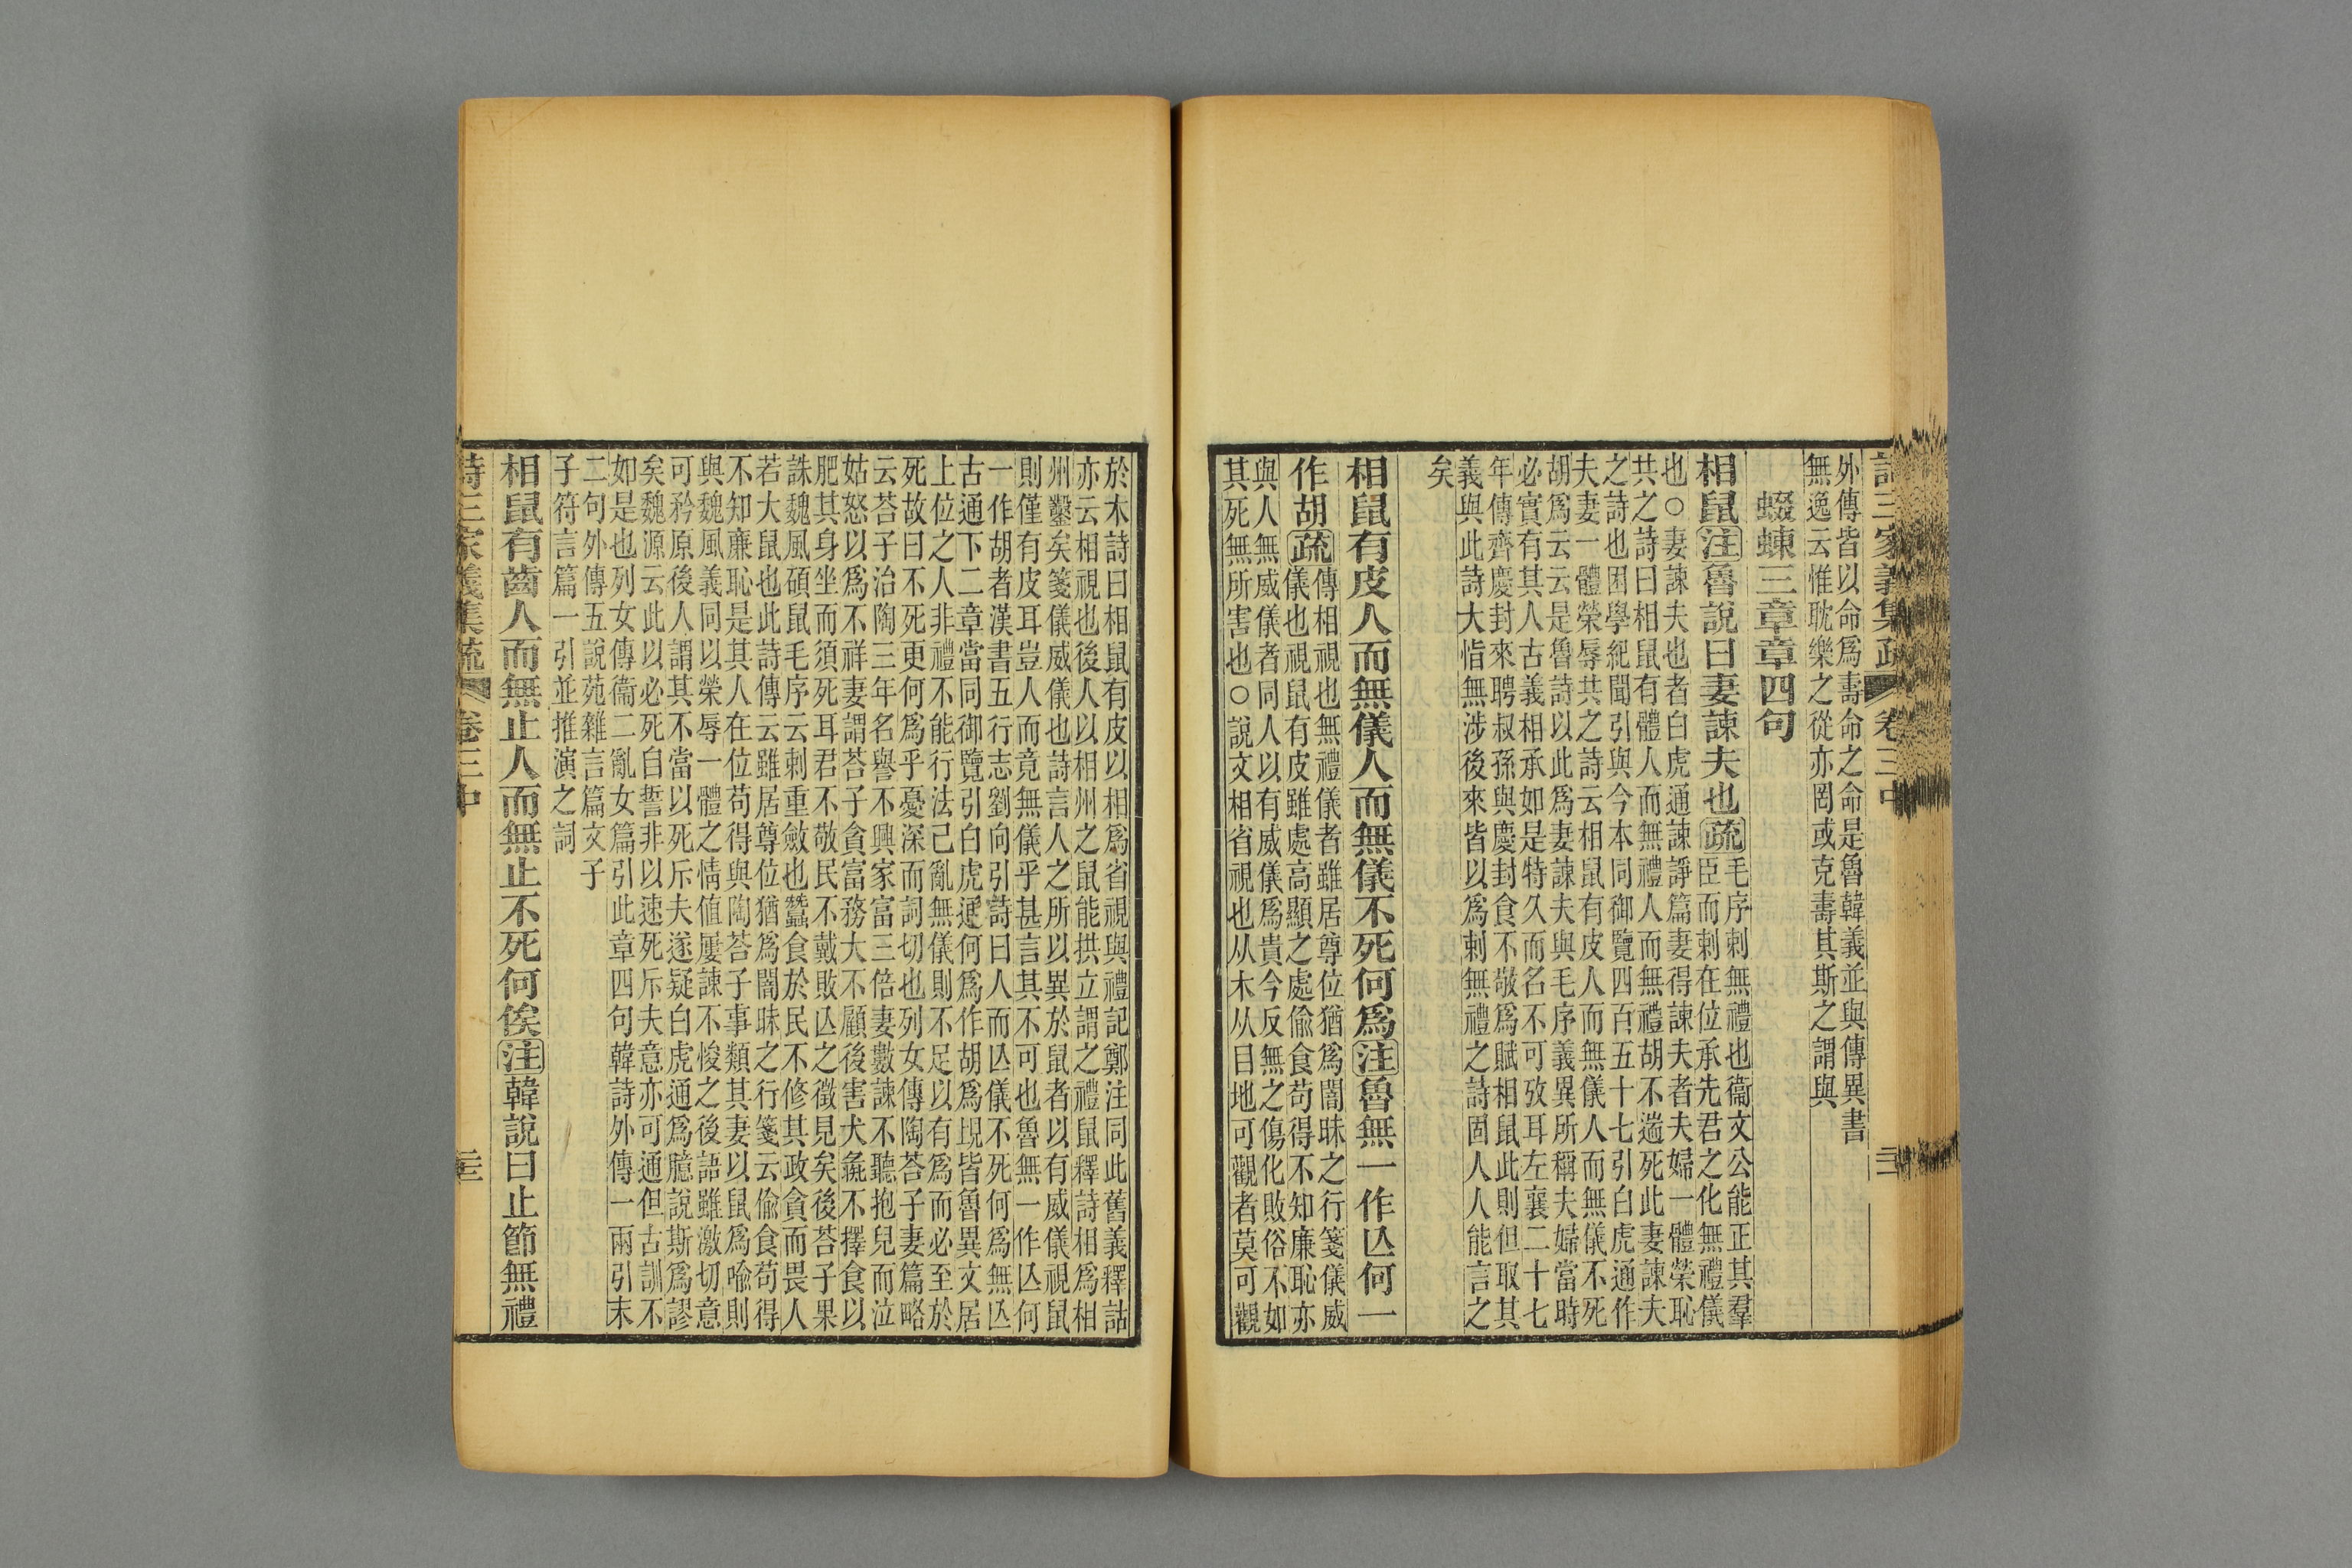 詩三家義集疏 卷三中 二二
外傳皆以命爲壽命之命是魯韓義並與傳異書
無逸云惟耽樂之從亦罔或克壽其斯之謂與
蝃蝀三章章四句
相鼠注魯說曰妻諫夫也疏
毛序刺無禮也衞文公能正其羣
臣而刺在位承先君之化無禮儀
也○妻諫夫也者白虎通諫諍篇妻得諫夫者夫婦一體榮恥
共之詩曰相鼠有體人而無禮人而無禮胡不遄死此妻諫夫
之詩也困學紀聞引與今本同御覽四百五十七引白虎通作
夫妻一體榮辱共之詩云相鼠有皮人而無儀人而無儀不死
胡爲云云是魯詩以此爲妻諫夫與毛序義異所稱夫婦當時
必實有其人古義相承如是特久而名不可攷耳左襄二十七
年傳齊慶封來聘叔孫與慶封食不敬爲賦相鼠此則但取其
義與此詩大恉無涉後來皆以爲刺無禮之詩固人人能言之
矣
相鼠有皮人而無儀人而無儀不死何爲注魯無一作亾何一
作胡疏
傳相視也無禮儀者雖居尊位猶爲闇昧之行箋儀威
儀也視鼠有皮雖處高顯之處偷食苟得不知廉恥亦
與人無威儀者同人以有威儀爲貴今反無之傷化敗俗不如
其死無所害也○說文相省視也从木从目地可觀者莫可觀
於木詩曰相鼠有皮以相爲省視與禮記鄭注同此舊義釋詁
亦云相視也後人以相州之鼠能拱立謂之禮鼠釋詩相爲相
州鑿矣箋儀威儀也詩言人之所以異於鼠者以有威儀視鼠
則僅有皮耳豈人而竟無儀乎甚言其不可也魯無一作亾何
一作胡者漢書五行志劉向引詩曰人而亾儀不死何爲無亾
古通下二章當同御覽引白虎通何爲作胡爲㫮皆魯異文居
上位之人非禮不能行法己亂無儀則不足以有爲而必至於
死故曰不死更何爲乎憂深而詞切也列女傳陶荅子妻篇略
云荅子治陶三年名譽不興家富三倍妻數諫不聽抱兒而泣
姑怒以爲不祥妻謂荅子貪富務大不顧後害犬彘不擇食以
肥其身坐而須死耳君不敬民不戴敗亾之徵見矣後荅子果
誅魏風碩鼠毛序云刺重斂也蠶食於民不修其政貪而畏人
若大鼠也此詩傳云雖居尊位猶爲闇昧之行箋云偷食苟得
不知廉恥是其人在位苟得與陶荅子事類其妻以鼠爲喻則
與魏風義同以榮辱一體之情值屢諫不悛之後語雖激切意
可矜原後人謂其不當以死斥夫遂疑白虎通爲臆說斯爲謬
矣魏源云此以必死自誓非以速死斥夫意亦可通但古訓不
如是也列女傳衞二亂女篇引此章四句韓詩外傳一兩引末
二句外傳五說苑雜言篇文子
子符言篇一引並推演之詞
相鼠有齒人而無止人而無止不死何俟注韓說曰止節無禮
詩三家義集疏 卷三中 二三